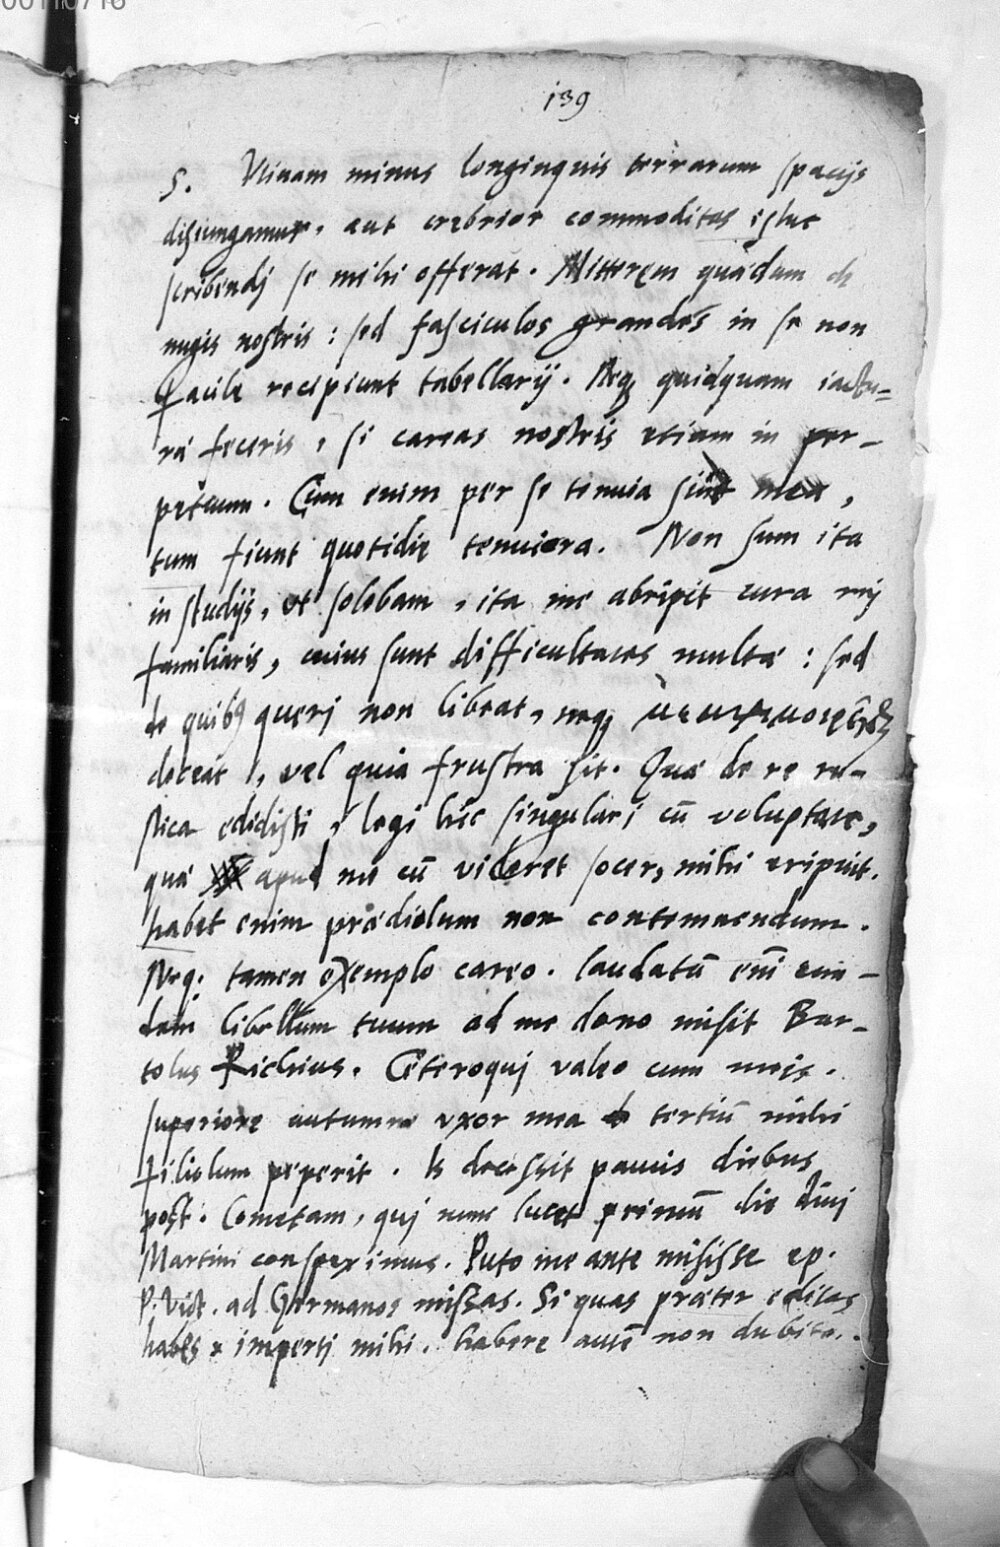 00110716
139
S. Vtinam minus longinquis terrarum spacijs
disiungamur, aut crebrior commoditas istuc
scribendj se mihi offerat. Mitterem quædam de
nugis nostris: sed fasciculos grandes in se non
facile recipiunt tabellarij. Neq; quidquam iactu-
ræ feceris, si careas nostris etiam in per-
petuum. Cum enim per se tenuia sunt mea,
tum fiunt quotidie tenuiora. Non sum ita
in studijs, vt solebam, ita me abripit cura rej
familiaris, cuius sunt difficultates multæ: sed
de quibꝰ querj non libeat, neq;
doceat, vel quia frustra sit. Quæ de re ru-
stica edidisti, legi hîc singularj cũ voluptate,
quæ apud me cũ videret socer, mihi eripuit.
habet enim prædiolum non contemnendum.
Neq; tamen exemplo careo. laudatũ enĩ eun-
dem libellum tuum ad me dono misit Bar-
tolus Richius. Cæteroquj valeo cum meis.
superiore autumno vxor mea tertiũ mihi
filiolum peperit. Is decessit paucis diebus
post. Cometam, quj nunc lucet primũ die diuj
Martini conspeximus. Puto me ante misisse ep.
P. Vict. ad Germanos missas. Si quas præter editas
habes impertj mihi. habere autẽ non dubito.